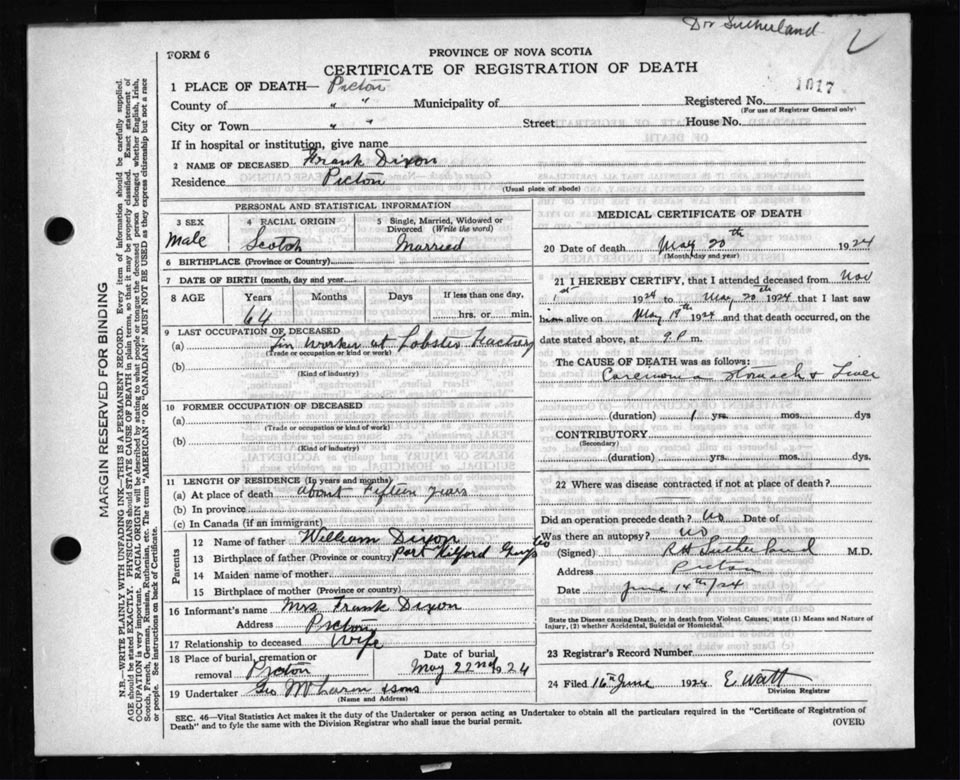 Dr Sutherland
FORM 6
PROVINCE OF NOVA SCOTIA
CERTIFICATE OF REGISTRATION OF DEATH
1 PLACE OF DEATH— Pictou
1017
County of " " Municipality of Registered No.
(For use of Registrar General only)
City or Town " " Street House No.
If in hospital or institution, give name
2 NAME OF DECEASED Frank Dixon
Residence Pictou
(Usual place of abode)
MARGIN RESERVED FOR BINDING
N.B.—WRITE PLAINLY WITH UNFADING INK—THIS IS A PERMANENT RECORD. Every item of information should be carefully supplied.
AGE should be stated EXACTLY. PHYSICIANS should STATE CAUSE OF DEATH in plain terms, so that it may be properly classified. Exact statement of
OCCUPATION is very important. RACIAL ORIGIN will be described by stating to what people or tongue the deceased person belonged whether English, Irish,
Scotch, French, German, Russian, Ruthenian, etc. The terms "AMERICAN" OR "CANADIAN" MUST NOT BE USED as they express citizenship but not a race
or people. See instructions on back of Certificate.
PERSONAL AND STATISTICAL INFORMATION
3 SEX
Male
4 RACIAL ORIGIN
Scotch
5 Single, Married, Widowed or
Divorced (Write the word)
Married
6 BIRTHPLACE (Province or Country)
7 DATE OF BIRTH (month, day and year)
8 AGE Years Months Days If less than one day,
64 hrs. or min.
9 LAST OCCUPATION OF DECEASED
(a) Tin Worker at Lobster Factory
(Trade or occupation or kind of work)
(b)
(Kind of industry)
10 FORMER OCCUPATION OF DECEASED
(a)
(Trade or occupation or kind of work)
(b)
(Kind of industry)
11 LENGTH OF RESIDENCE (In years and months)
(a) At place of death About Fifteen years
(b) In province
(c) In Canada (if an immigrant)
Parents
12 Name of father William Dixon
13 Birthplace of father (Province or country) Port Hilford Guysboro
14 Maiden name of mother
15 Birthplace of mother (Province or country)
16 Informant's name Mrs Frank Dixon
Address Pictou
17 Relationship to deceased Wife
18 Place of burial, cremation or
removal Pictou
Date of burial
May 22nd 1924
19 Undertaker Geo & Sons
(Name and Address)
MEDICAL CERTIFICATE OF DEATH
20 Date of death May 20th 1924
(Month, day and year)
21 I HEREBY CERTIFY, that I attended deceased from Nov
1st 1924 to May 20th 1924 that I last saw
him alive on May 19th 1924 and that death occurred, on the
date stated above, at 9 P m.
The CAUSE OF DEATH was as follows:
Carcinoma Stomach & Liver
(duration) 1 yrs. mos. dys
CONTRIBUTORY
(Secondary)
(duration) yrs. mos. dys.
22 Where was disease contracted if not at place of death?
Did an operation precede death? No Date of
Was there an autopsy? No
(Signed) R H Sutherland M.D.
Address Pictou
Date June 14th/24
State the Disease causing Death, or in death from Violent Causes, state (1) Means and Nature of
Injury, (2) whether Accidental, Suicidal or Homicidal.
23 Registrar's Record Number
24 Filed 16th June 1924 E Watt
Division Registrar
SEC. 46—Vital Statistics Act makes it the duty of the Undertaker or person acting as Undertaker to obtain all the particulars required in the "Certificate of Registration of
Death" and to fyle the same with the Division Registrar who shall issue the burial permit.
(OVER)